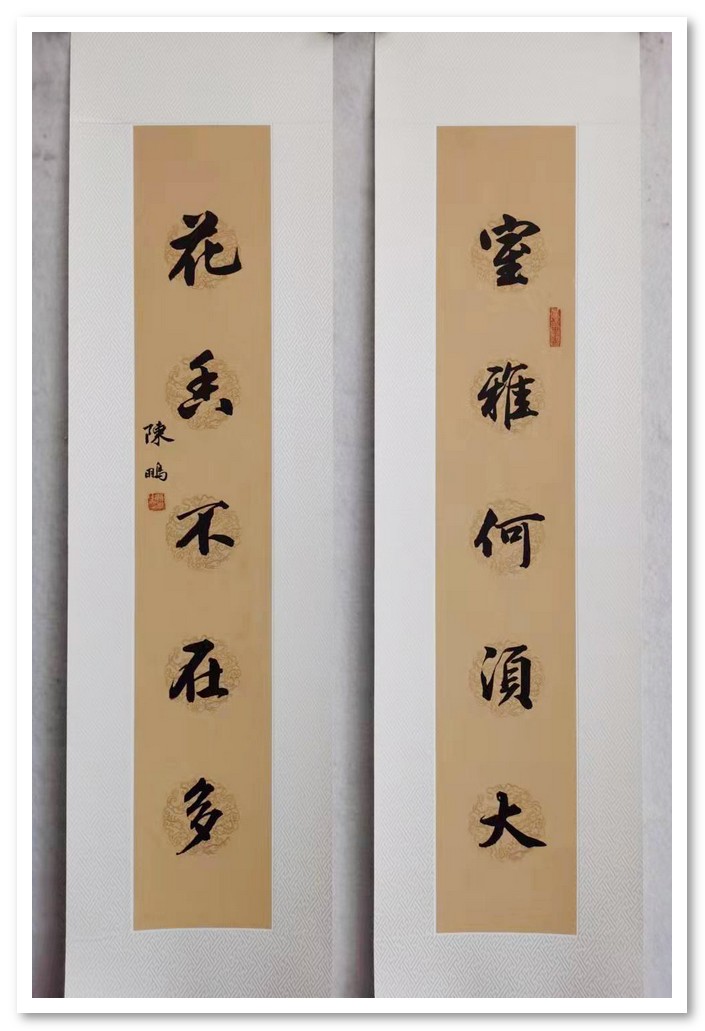 室雅何須大
花香不在多
陳鵬